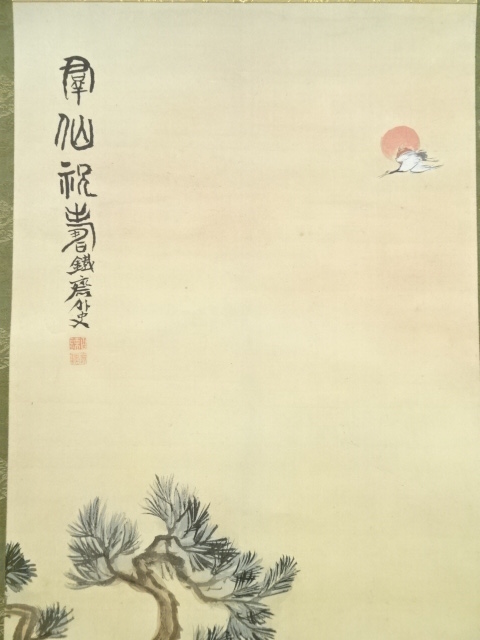 羣仙祝壽鐵齋外史